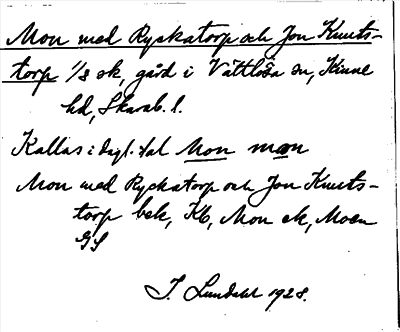 Mon med Ryskatorp och Jon Knuts-
torp 1/8 sk, gård i Vättlösa sn, Kinne
hd, Skarab. l.
Kallas i dagl. tal Mon mɷn
Mon med Ryskatorp och Jon Knuts-
torp bek, Kb, Mon ek, Moen
GS
I. Lundahl 1928.